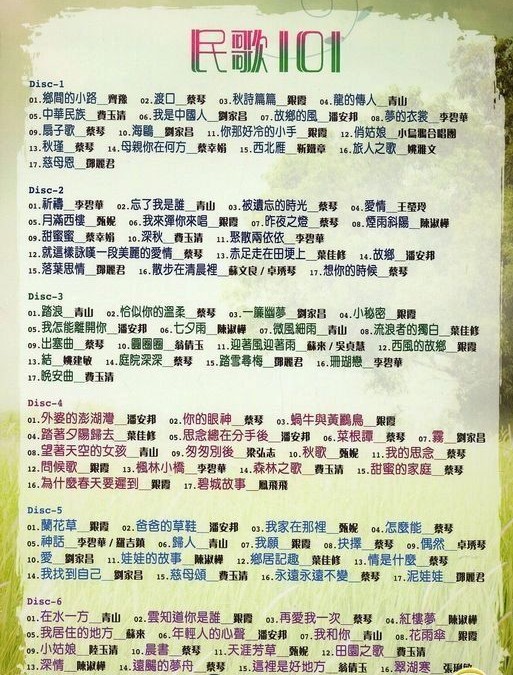 民歌101
Disc-1
01.鄉間的小路__齊豫 02.渡口__蔡琴 03.秋詩篇篇__銀霞 04.龍的傳人__青山
05.中華民族__費玉清 06.我是中國人__劉家昌 07.故鄉的風__潘安邦 08.夢的衣裳__李碧華
09.扇子歌__蔡琴 10.海鷗__劉家昌 11.你那好冷的小手__銀霞 12.俏姑娘__小烏鴉合唱團
13.秋瑾__蔡琴 14.母親你在何方__蔡幸娟 15.西北雁__靳鐵章 16.旅人之歌__姚雅文
17.慈母恩__鄧麗君
Disc-2
01.祈禱__李碧華 02.忘了我是誰__青山 03.被遺忘的時光__蔡琴 04.愛情__王瑩玲
05.月滿西樓__甄妮 06.我來彈你來唱__銀霞 07.昨夜之燈__蔡琴 08.煙雨斜陽__陳淑樺
09.甜蜜蜜__蔡幸娟 10.深秋__費玉清 11.聚散兩依依__李碧華
12.就這樣詠嘆一段美麗的愛情__蔡琴 13.赤足走在田埂上__葉佳修 14.故鄉__潘安邦
15.落葉思情__鄧麗君 16.散步在清晨裡__蘇文良/卓琇琴 17.想你的時候__蔡琴
Disc-3
01.踏浪__青山 02.恰似你的溫柔__蔡琴 03.一簾幽夢__劉家昌 04.小秘密__銀霞
05.我怎能離開你__潘安邦 06.七夕雨__陳淑樺 07.微風細雨__青山 08.流浪者的獨白__葉佳修
09.出塞曲__蔡琴 10.圈圈__翁倩玉 11.迎著風迎著雨__蘇來/吳貞慧 12.西風的故鄉__銀霞
13.結__姚建敏 14.庭院深深__蔡琴 15.踏雪尋梅__鄧麗君 16.珊瑚戀__李碧華
17.晚安曲__費玉清
Disc-4
01.外婆的澎湖灣__潘安邦 02.你的眼神__蔡琴 03.蝸牛與黃鸝鳥__銀霞
04.踏著夕陽歸去__葉佳修 05.思念總在分手後__潘安邦 06.菜根譚__蔡琴 07.霧__劉家昌
08.望著天空的女孩__青山 09.匆匆別後__梁弘志 10.秋歌__甄妮 11.我的思念__蔡琴
12.問候歌__銀霞 13.楓林小橋__李碧華 14.森林之歌__費玉清 15.甜蜜的家庭__蔡琴
16.為什麼春天要遲到__銀霞 17.碧城故事__鳳飛飛
Disc-5
01.蘭花草__銀霞 02.爸爸的草鞋__潘安邦 03.我家在那裡__甄妮 04.怎麼能__蔡琴
05.神話__李碧華/羅吉鎮 06.歸人__青山 07.我願__銀霞 08.抉擇__蔡琴 09.偶然__卓琇琴
10.愛__劉家昌 11.娃娃的故事__陳淑樺 12.鄉居記趣__潘安邦 13.情是什麼__蔡琴
14.我找到自己__劉家昌 15.慈母頌__費玉清 16.永遠永遠不變__蔡琴 17.泥娃娃__鄧麗君
Disc-6
01.在水一方__青山 02.雲知道你是誰__銀霞 03.再愛我一次__蔡琴 04.紅樓夢__陳淑樺
05.我居住的地方__蘇來 06.年輕人的心聲__潘安邦 07.我和你__青山 08.花雨傘__銀霞
09.小姑娘__陸玉清 10.晨書__蔡琴 11.天涯芳草__甄妮 12.田園之歌__費玉清
13.深情__陳淑樺 14.遠颺的夢舟__蔡琴 15.這裡是好地方__翁倩玉 16.翠湖寒